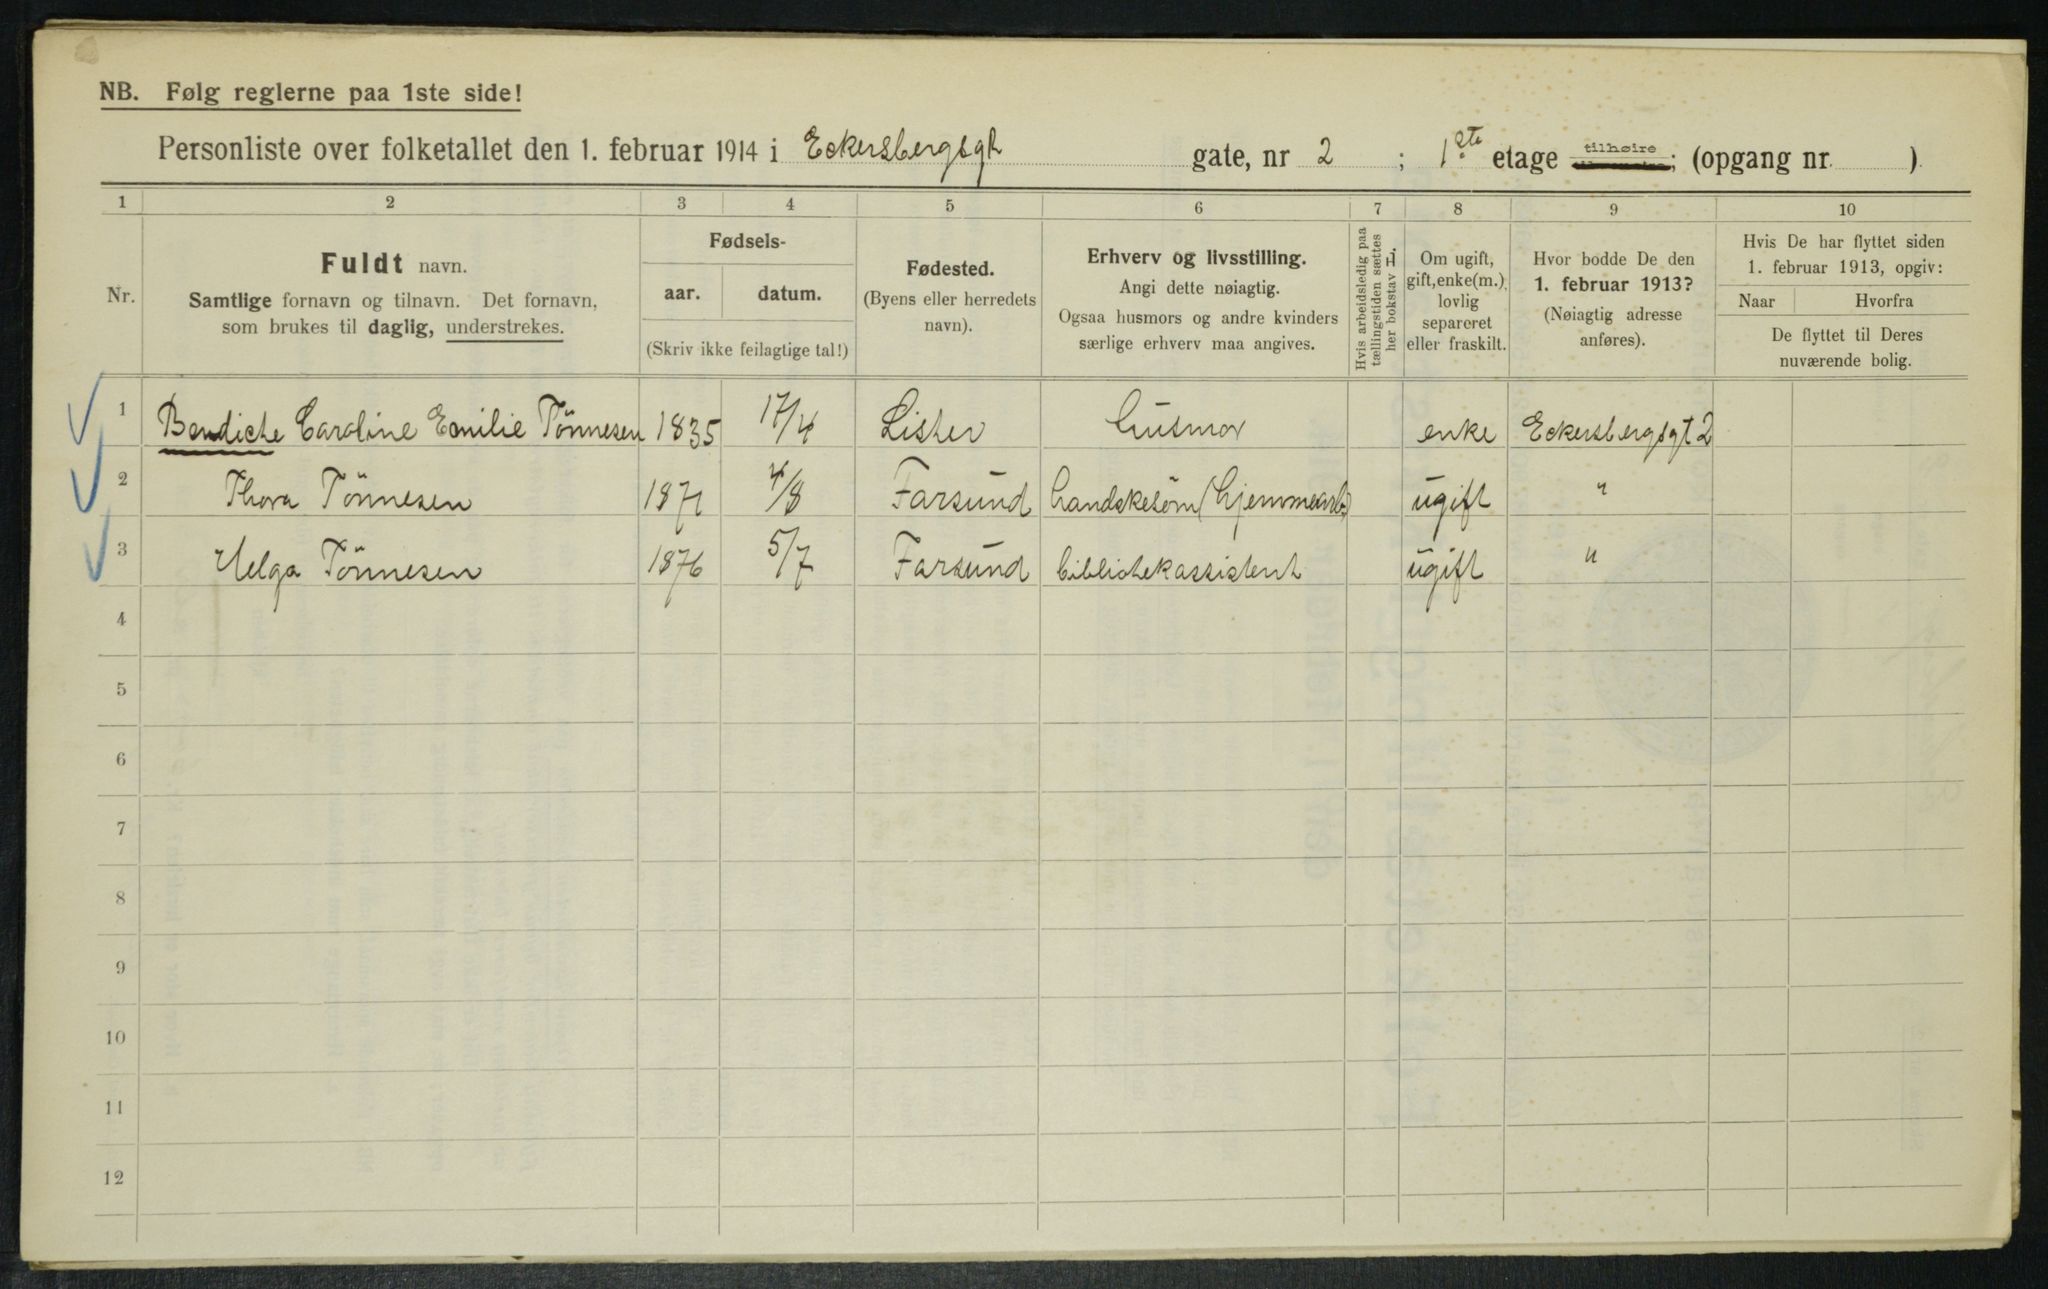 NB. Følg reglerne paa 1ste side!
Personliste over folketallet den 1. februar 1914 i Eckersbergsgt gate, nr 2 ; 1ste etage tilhøire; (opgang nr. ).
1 2 3 4 5 6 7 8 9 10
Nr.
Fuldt navn.
Samtlige fornavn og tilnavn. Det fornavn,
som brukes til daglig, understrekes.
Fødsels-
aar. datum.
(Skriv ikke feilagtige tal!)
Fødested.
(Byens eller herredets
navn).
Erhverv og livsstilling.
Angi dette nøiagtig.
Ogsaa husmors og andre kvinders
særlige erhverv maa angives.
Hvis arbeidsledig paa
tællingstiden sættes
her bokstav L.
Om ugift,
gift, enke(m.),
lovlig
separeret
eller fraskilt.
Hvor bodde De den
1. februar 1913?
(Nøiagtig adresse
anføres).
Hvis De har flyttet siden
1. februar 1913, opgiv:
Naar Hvorfra
De flyttet til Deres
nuværende bolig.
1 Bendiche Caroline Emilie Tönnesen 1835 17/4 Lister husmor enke Eckersbergsgt 2
2 Thora Tönnesen 1871 4/8 Farsund handskesöm (hjemmearb.) ugift "
3 Helga Tönnesen 1876 5/7 Farsund bibliotekassistent ugift "
4
5
6
7
8
9
10
11
12